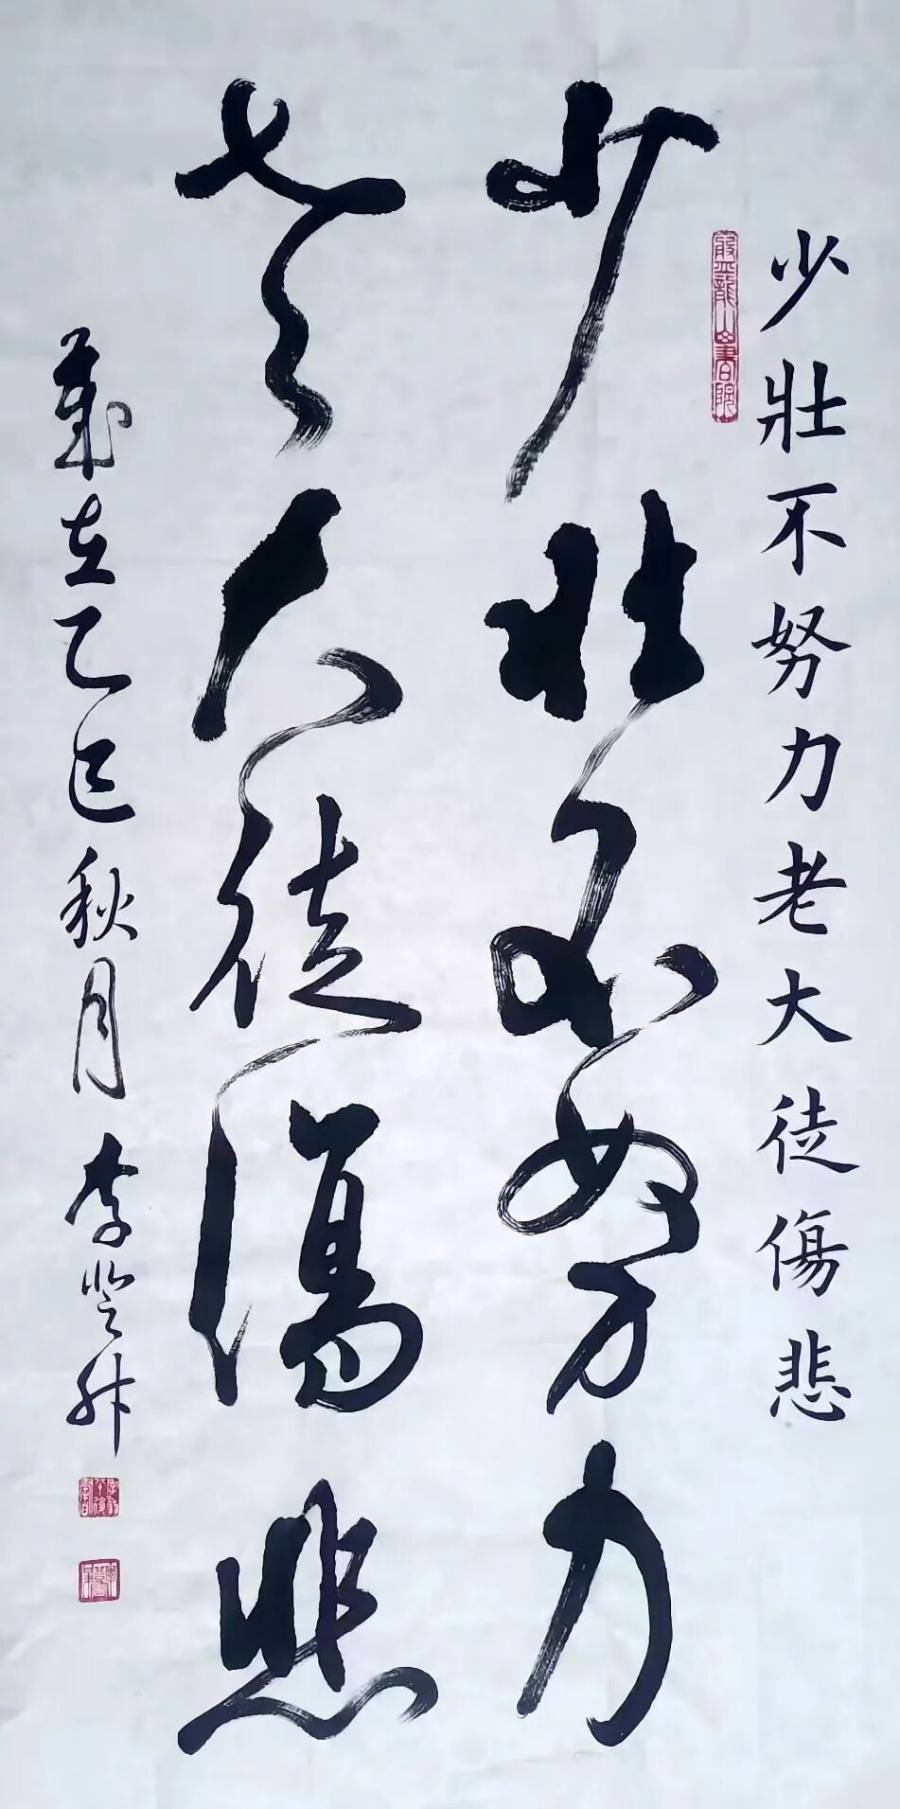 少壯不努力老大徒傷悲
少壯不努力
老大徒傷悲
歲在乙巳秋月李登升